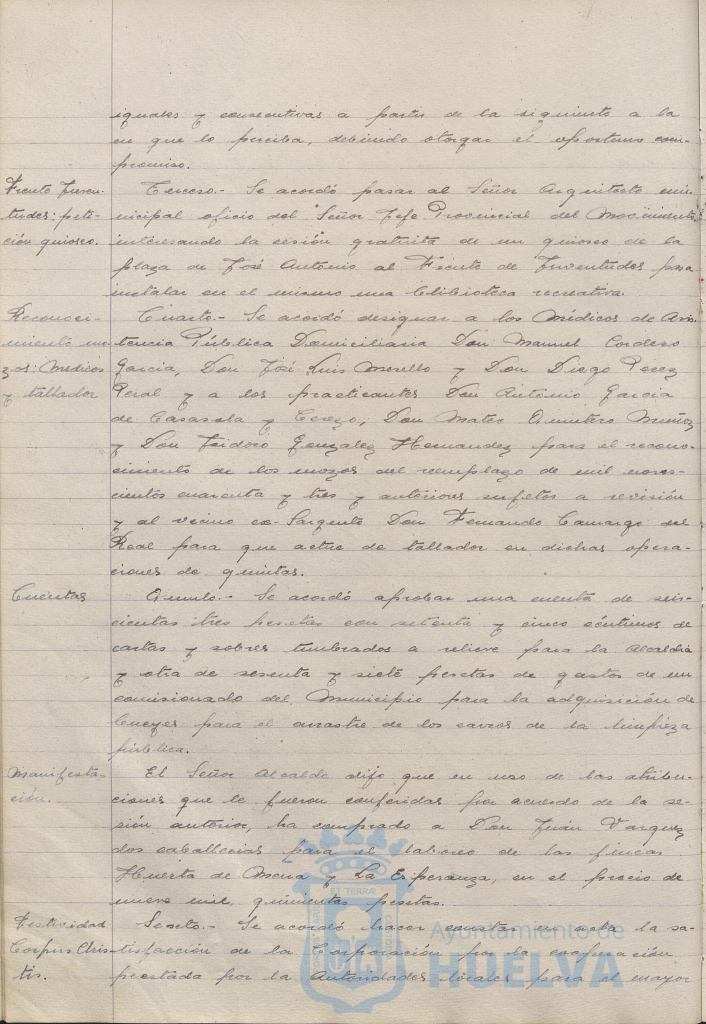 iguales y consecutivas a partir de la siguiente a la
en que lo perciba, debiendo otorgar el oportuno com-
promiso.
Frente Juven-
tudes: peti-
ción quiosco.
Tercero.- Se acordó pasar al Señor Arquitecto mu-
nicipal oficio del Señor Jefe Provincial del Movimiento
interesando la cesión gratuita de un quiosco de la
plaza de José Antonio al Frente de Juventudes para
instalar en el mismo una biblioteca recreativa.
Reconoci-
miento mo-
zos: Medicos
y tallador
Cuarto.- Se acordó designar a los Médicos de Asis-
tencia Pública Domiciliaria Don Manuel Cordero
García, Don José Luis Morello y Don Diego Perez
Peral y a los practicantes Don Antonio Garcia
de Casasola y Cerezo, Don Mateo Quintero Muñoz
y Don Isidoro Gonzalez Hernandez para el recono-
cimiento de los mozos del remplazo de mil nove-
cientos cuarenta y tres y anteriores sujetos a revisión
y al vecino ex-Sargento Don Fernando Camargo del
Real para que actue de tallador en dichas opera-
ciones de quintas.
Cuentas
Quinto.- Se acordó aprobar una cuenta de seis-
cientas tres pesetas con setenta y cinco céntimos de
cartas y sobres timbrados a relieve para la Alcaldia
y otra de sesenta y siete pesetas de gastos de un
comisionado del Municipio para la adquisición de
bueyes para el arrastre de los carros de la limpieza
pública.
Manifesta-
ción.
El Señor Alcalde dijo que en uso de las atribu-
ciones que le fueron conferidas por acuerdo de la se-
sión anterior, ha comprado a Don Juán Vazquez
dos caballerias para el laboreo de las fincas
Huerta de Mena y La Esperanza, en el precio de
nueve mil quinientas pesetas.
Festividad
Corpus Chris-
tis.
Sexto.- Se acordó hacer constar en acta la sa-
tisfacción de la Corporación por la cooperación
prestada por la Autoridades locales para el mayor
Ayuntamiento de
HUELVA